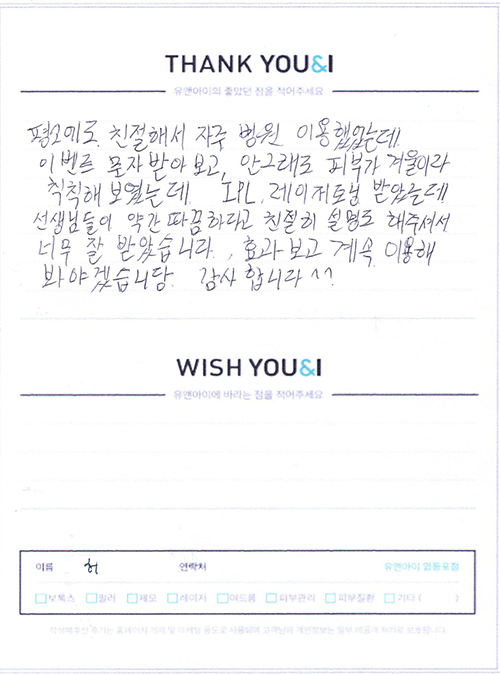 THANK YOU&I
유앤아이의 좋았던 점을 적어주세요
평소에도 친절해서 자주 병원 이용했었는데
이벤트 문자 받아보고, 안그래도 피부가 겨울이라
칙칙해 보였는데 IPL, 레이저토닝 받았는데
선생님들이 약간 따끔하다고 친절히 설명도 해주셔서
너무 잘 받았습니다., 효과보고 계속 이용해
봐야겠습니당. 감사합니다 ^^
WISH YOU&I
유앤아이에 바라는 점을 적어주세요
이름 허 연락처 유앤아이 영등포점
보톡스 필러 제모 레이저 여드름 피부관리 피부질환 기타 ( )
작성해주신 후기는 홈페이지 게재 및 마케팅 용도로 사용되며 고객님의 개인정보는 일부 비공개 처리로 보호됩니다.